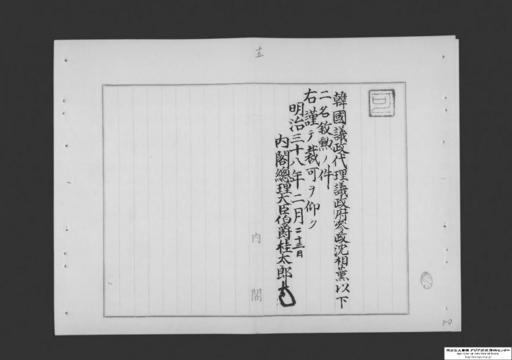 韓國議政代理議政府參政沈相薰以下
二名敘勲ノ件
右謹テ裁可ヲ仰ク
明治三十八年二月二十三日
内閣總理大臣伯爵桂太郎
内閣